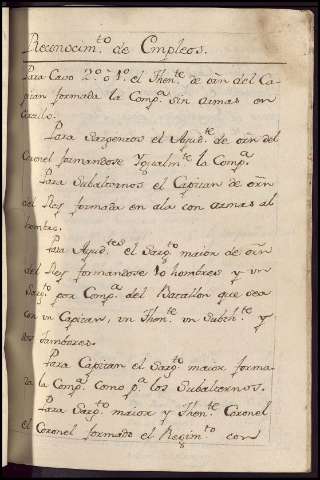 Reconocim.to de Empleos.
Para Cavo 2.o ò 1.o el Then.te de orn del Ca-
pitan formada la Comp.a sin armas en
Corillo.
Para Sargentos el Ayud.te de orn del
Coronel formandose Ygualm.te la Comp.a
Para Subalternos el Capitan de orn
del Rey formada en ala con armas al
hombro.
Para Ayud.tes el Sarg.to maior de orn
del Rey formandose 10 hombres y un
Sarg.to por Comp.a del Batallon que sea
con un Capitan, un Then.te un Subth.te y
dos tambores.
Para Capitan el Sarg.to maior forma-
da la Comp.a como p.a los Subalternos.
Para Sarg.to maior y Then.te Coronel
el Coronel formado el Regim.to con